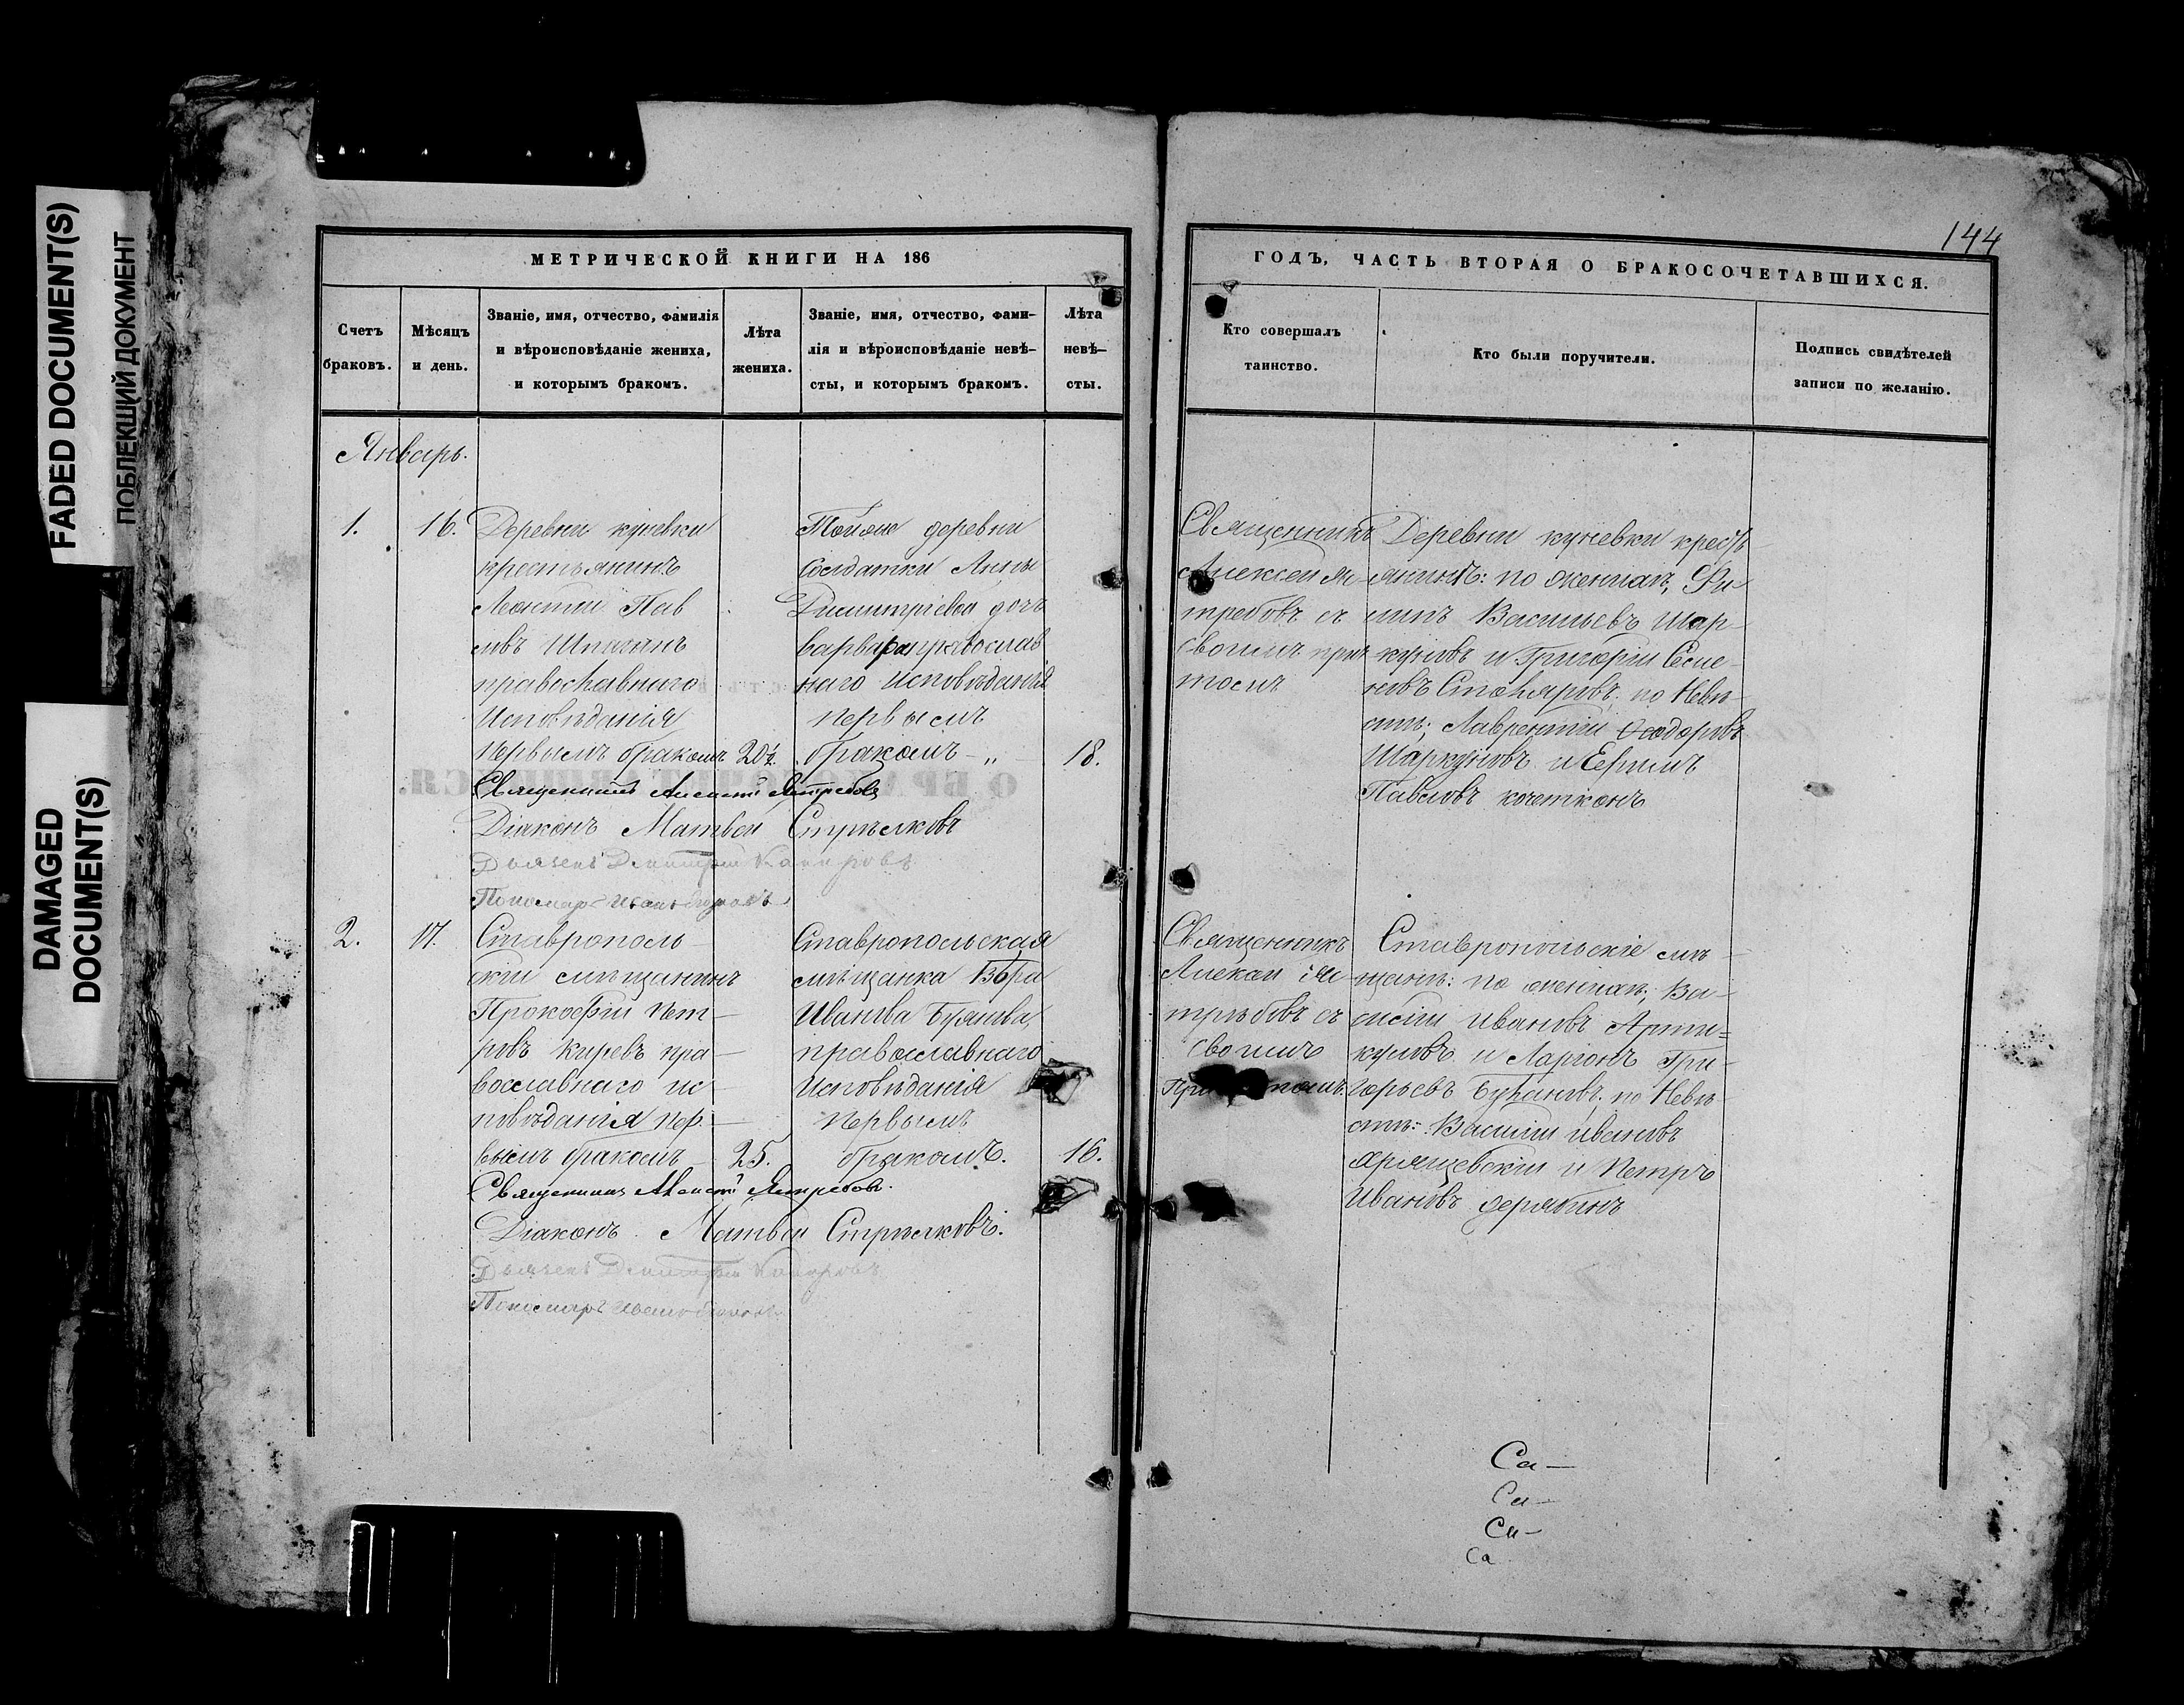 FADED DOCUMENT(S)
ПОБЛЕКШИЙ ДОКУМЕНТ
DAMAGED
DOCUMENT(S)
МЕТРИЧЕСКОЙ КНИГИ НА 186
Счетъ
браковъ.
Мѣсяцъ
и день.
Званіе, имя, отчество, фамилія
и вѣроисповѣданіе жениха,
и которымъ бракомъ.
Лѣта
жениха.
Званіе, имя, отчество, фами-
лія и вѣроисповѣданіе невѣ-
сты, и которымъ бракомъ.
Лѣта
невѣ-
сты.
Январь.
1.
16.
Деревни куневки
крестьянинъ
Леонтій Пав
ловъ Шпагинъ
православнаго
Исповѣданія
Первымъ бракомъ
20½.
Тойже деревни
Солдатки Анны
Димитріевой дочь
варвара православ
наго исповѣданія
первымъ
бракомъ - „
18.
Священникъ Алексѣй Ястребовъ
Діаконъ Матвей Стрѣлковъ
Дьячекъ Дмитрій
Пономарь Иванъ
2.
17.
Ставрополь-
скій мѣщанинъ
Прокофій Пет-
ровъ Киревъ пра-
вославнаго ис
повѣданія пер.
вымъ бракомъ
25.
Ставропольская
мѣщанка Вѣра
Иванова
православнаго
Исповѣданія
Первымъ
бракомъ.
16.
Священникъ Алексѣй Ястребовъ.
Діаконъ Матвей Стрѣлковъ.
Дьячекъ Дмитрій
Пономарь Иванъ
144
ГОДЪ, ЧАСТЬ ВТОРАЯ О БРАКОСОЧЕТАВШИХСЯ.
Кто совершалъ
таинство.
Кто были поручители.
Подпись свидѣтелей
записи по желанію.
Священникъ
Алексей Яс
требовъ съ
своимъ прич
томъ
Деревни куневки крестъ
янинъ: по женихѣ, Фи-
липъ Васильевъ Шар-
куновъ и Григорій Семе-
новъ Столяровъ; по Невѣ-
стѣ; Лаврентій Феодоровъ
Шаркуновъ и Ефимъ
Павловъ кочетковъ
Священникъ
Алексей Яс
трѣбовъ съ
своимъ
томъ.
Ставропольскіе мѣ-
щанѣ: по женихѣ; Ва-
силій Ивановъ Арти=
куловъ и Ларіонъ Гри-
горьевъ по Невѣ-
стѣ: Василій Ивановъ
и Петръ
Ивановъ дерябинъ
Са-
Са-
Са-
Са